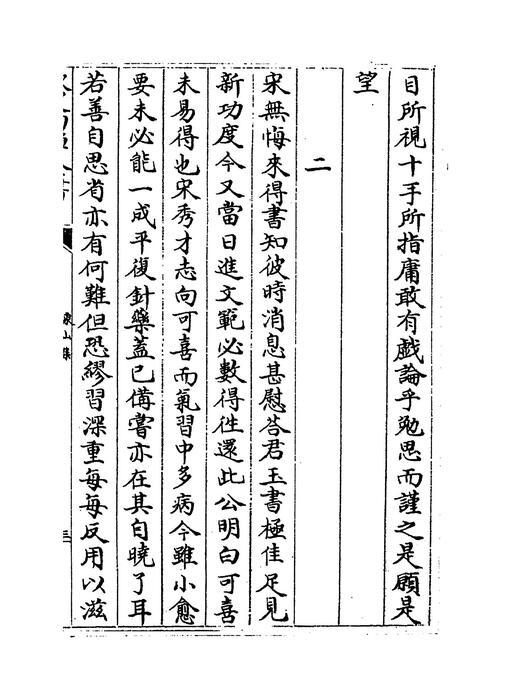 目所視十手所指庸敢有戲論乎勉思而謹之是願是
望
二
宋無悔來得書知彼時消息甚慰荅君玉書極佳足見
新功度今又當日進文範必數得徃還此公明白可喜
未易得也宋秀才志向可喜而氣習中多病今雖小愈
要未必能一成平復針藥蓋已備嘗亦在其自曉了耳
若善自思省亦有何難但恐繆習深重每每反用以滋
象山集
三